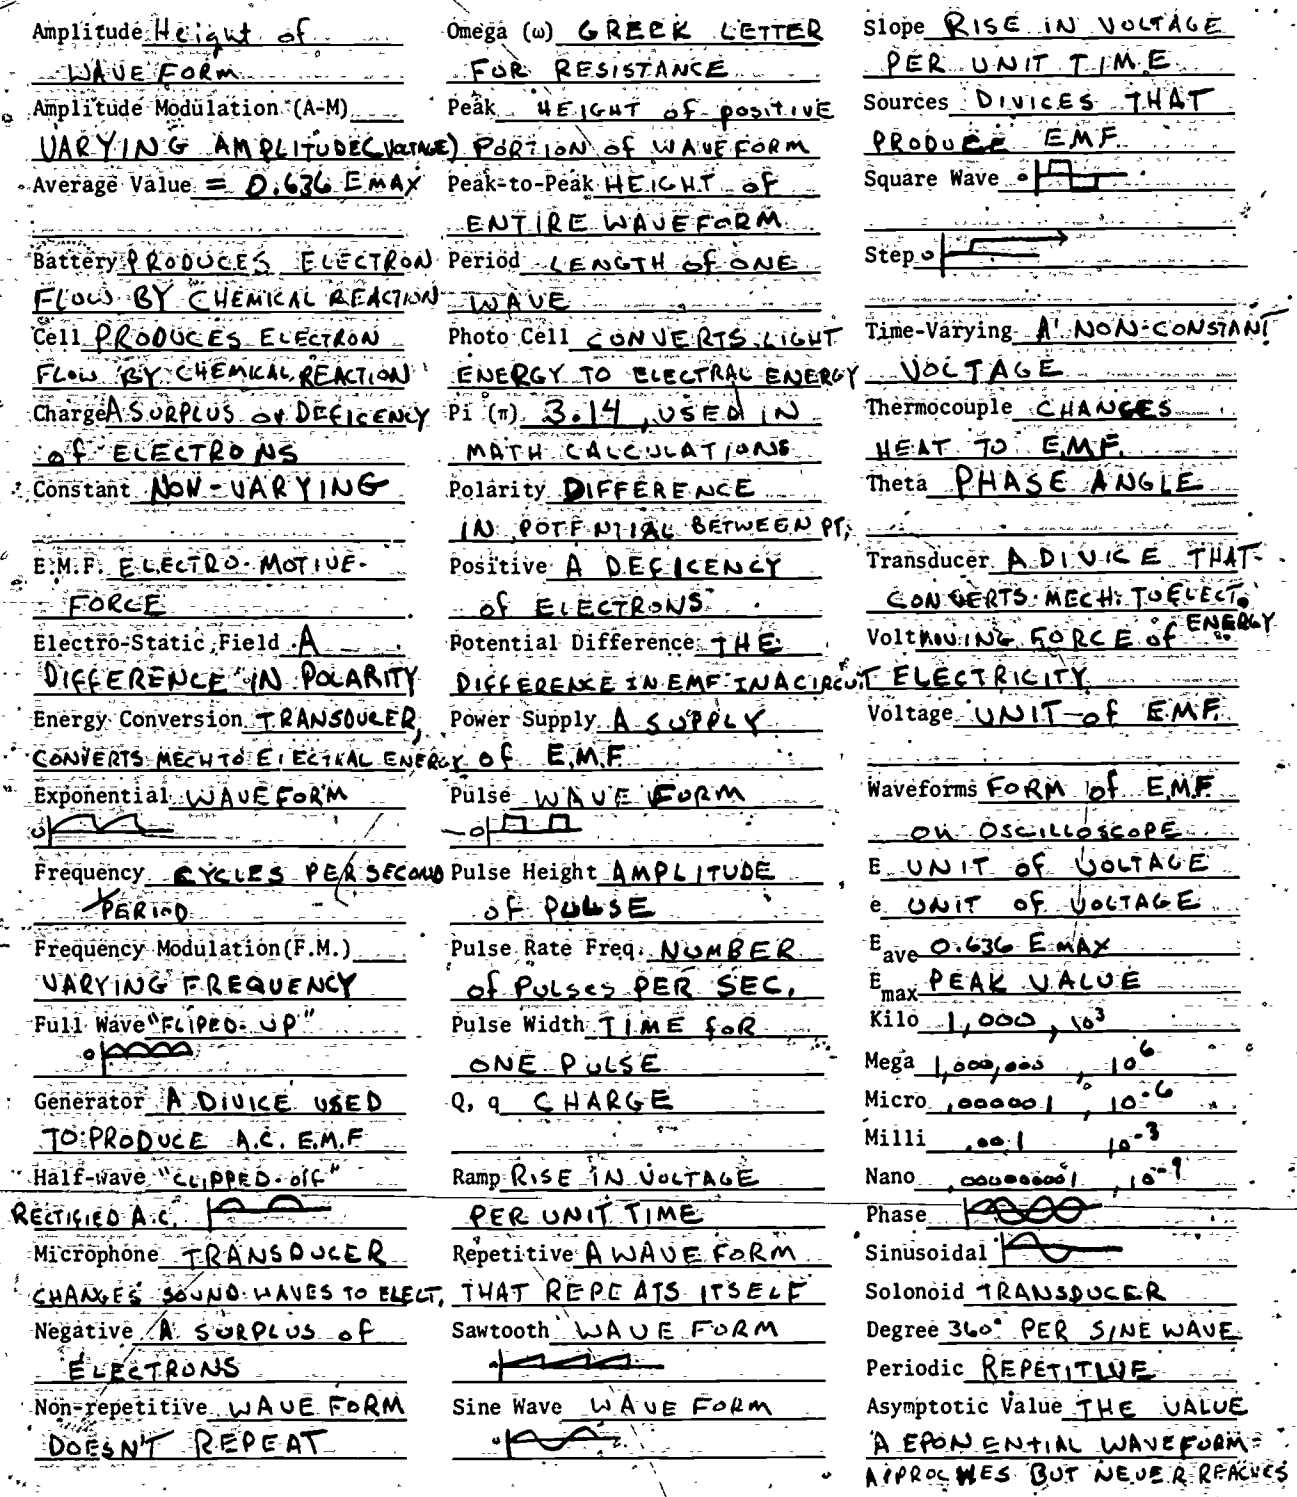 Amplitude Height of
WAVE FORM
Amplitude Modulation (A-M)
VARYING AMPLITUDE (VOLTAGE)
Average Value = 0.636 EMAX
Battery PRODUCES ELECTRON
FLOW BY CHEMICAL REACTION
Cell PRODUCES ELECTRON
FLOW BY CHEMICAL REACTION
Charge A SURPLUS or DEFICENCY
of ELECTRONS
Constant NON-VARYING
E.M.F. ELECTRO-MOTIVE-
FORCE
Electro-Static Field A
DIFFERENCE IN POLARITY
Energy Conversion TRANSDUCER,
CONVERTS MECH TO ELECTRAL ENERGY
Exponential WAVEFORM
0
Frequency CYCLES PER SECOND
PERIOD
Frequency Modulation(F.M.)
VARYING FREQUENCY
Full Wave "FLIPED-UP"
0
Generator A DIVICE USED
TO PRODUCE A.C. E.M.F
Half-wave "CLIPPED-off"
RECTIFIED A.C.
Microphone TRANSDUCER
CHANGES SOUND WAVES TO ELECT.
Negative A SURPLUS of
ELECTRONS
Non-repetitive WAVE FORM
DOESN'T REPEAT
Omega (ω) GREEK LETTER
FOR RESISTANCE
Peak HEIGHT of positive
PORTION of WAVEFORM
Peak-to-Peak HEIGHT of
ENTIRE WAVEFORM
Period LENGTH of ONE
WAVE
Photo Cell CONVERTS LIGHT
ENERGY TO ELECTRAL ENERGY
Pi (π) 3.14, USED IN
MATH CALCULATIONS
Polarity DIFFERENCE
IN POTENTIAL BETWEEN PT.
Positive A DEFICENCY
of ELECTRONS
Potential Difference THE
DIFFERENCE IN EMF IN A CIRCUIT
Power Supply A SUPPLY
of E.M.F.
Pulse WAVE FORM
0
Pulse Height AMPLITUDE
OF PULSE
Pulse Rate Freq. NUMBER
of Pulses PER SEC.
Pulse Width TIME foR
ONE PULSE
Q, q CHARGE
Ramp RISE IN VOLTAGE
PER UNIT TIME
Repetitive A WAVE FORM
THAT REPEATS ITSELF
Sawtooth WAVE FORM
Sine Wave WAVE FORM
Slope RISE IN VOLTAGE
PER UNIT TIME
Sources DIVICES THAT
PRODUCE EMF.
Square Wave 0
Step 0
Time-Varying A NON-CONSTANT
VOLTAGE
Thermocouple CHANGES
HEAT TO E.M.F.
Theta PHASE ANGLE
Transducer A DIVICE THAT
CONVERTS MECH. TO ELECT.
ENERGY
Volt MOVING FORCE of
ELECTRICITY
Voltage UNIT of EMF.
Waveforms FORM of E.M.F
ON OSCILLOSCOPE
E UNIT OF VOLTAGE
e UNIT OF VOLTAGE
Eave 0.636 EMAX
Emax PEAK VALUE
Kilo 1,000, 10³
Mega 1,000,000, 10⁶
Micro .000001, 10⁻⁶
Milli .001 10⁻³
Nano .000000001, 10⁻⁹
Phase
Sinusoidal
Solonoid TRANSDUCER
Degree 360° PER SINE WAVE
Periodic REPETITIVE
Asymptotic Value THE VALUE
A EPONENTIAL WAVEFORM
APPROCHES BUT NEVER REACHES